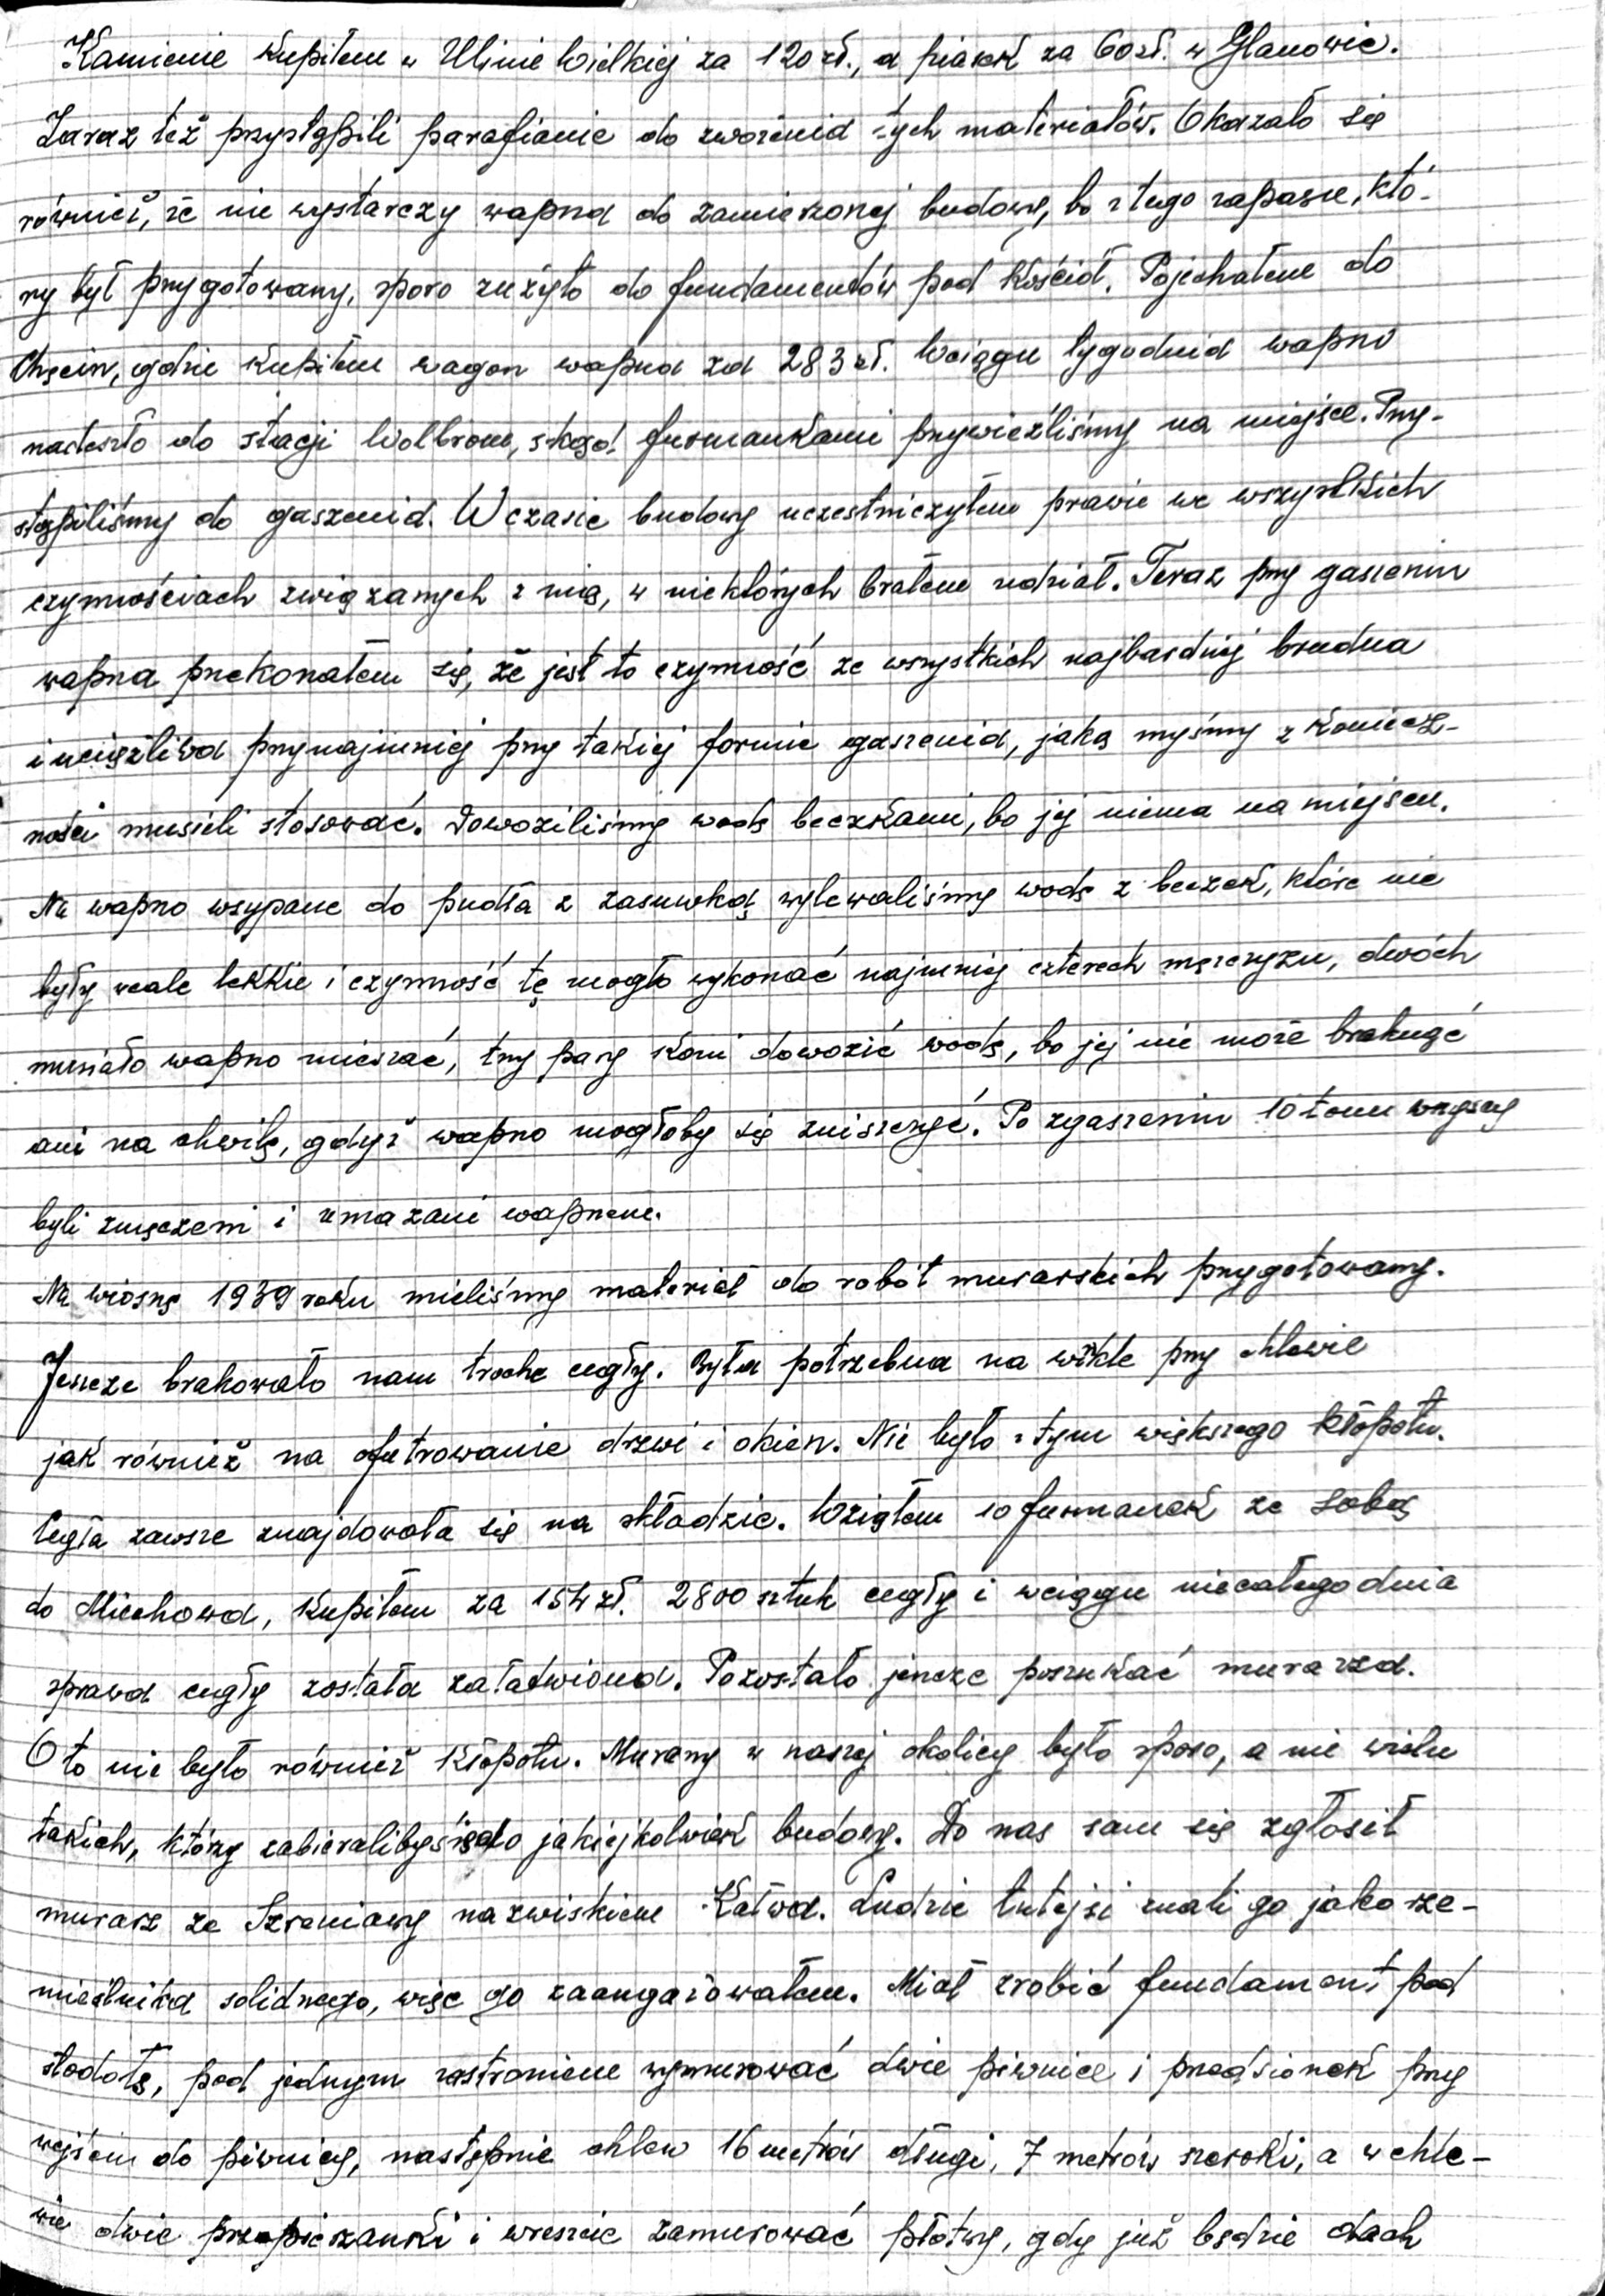 Kamienie kupiłem w Ulinie Wielkiej za 120 zł., a piasek za 60 zł. w Glanowie.
Zaraz też przystąpili parafianie do zwożenia tych materiałów. Okazało się
również, że nie wystarczy wapna do zamierzonej budowy, bo z tego zapasu, któ-
ry był przygotowany, sporo zużyto do fundamentów pod kościół. Pojechałem do
Chęcin, gdzie kupiłem wagon wapna za 283 zł. Wciągu tygodnia wapno
nadeszło do stacji Wolbrom, skąd furmankami przywieźliśmy na miejsce. Przy-
stąpiliśmy do gaszenia. W czasie budowy uczestniczyłem prawie we wszystkich
czynnościach związanych z nią, w niektórych brałem udział. Teraz przy gaszeniu
wapna przekonałem się, że jest to czynność ze wszystkich najbardziej brudna
i uciążliwa przynajmniej przy takiej formie gaszenia, jaką myśmy z koniecz-
ności musieli stosować. Dowoziliśmy wodę beczkami, bo jej niema na miejscu.
Na wapno wsypane do pudła z zasuwką wylewaliśmy wodę z beczek, które nie
były wcale lekkie i czynność tę mogło wykonać najmniej czterech mężczyzn, dwóch
musiało wapno mieszać, trzy pary koni dowozić wodę, bo jej nie może brakngć
ani na chwilę, gdyż wapno mogłoby się zniszczyć. Po zgaszeniu 10 tonn wszyscy
byli zmęczeni i umazani wapnem.
Na wiosnę 1939 roku mieliśmy materiał do robót murarskich przygotowany.
Jeszcze brakowało nam trochę cegły. Była potrzebna na wikle przy chlewie
jak również na ofutrowanie drzwi i okien. Nie było z tym większego kłopotu.
Cegła zawsze znajdowała się na składzie. Wziąłem 10 furmanek ze sobą
do Miechowa, kupiłem za 154 zł. 2800 sztuk cegły i wciągu niecałego dnia
sprawa cegły została załatwiona. Pozostało jeszcze poszukać murarza.
O to nie było również kłopotu. Murarzy w naszej okolicy było sporo, a nie wielu
takich, którzy zabieraliby się do jakiejkolwiek budowy. Do nas sam się zgłosił
murarz ze Szreniawy nazwiskiem Kałwa. Ludzie tutejsi znali go jako rze-
mieślnika solidnego, więc go zaangażowałem. Miał zrobić fundament pod
stodołę, pod jednym zastroniem wymurować dwie piwnice i przedsionek przy
wejściu do piwnicy, następnie chlew 16 metrów długi, 7 metrów szeroki, a w chle-
wie dwie przepierzanki i wreszcie zamurować płatwy, gdy już będzie dach